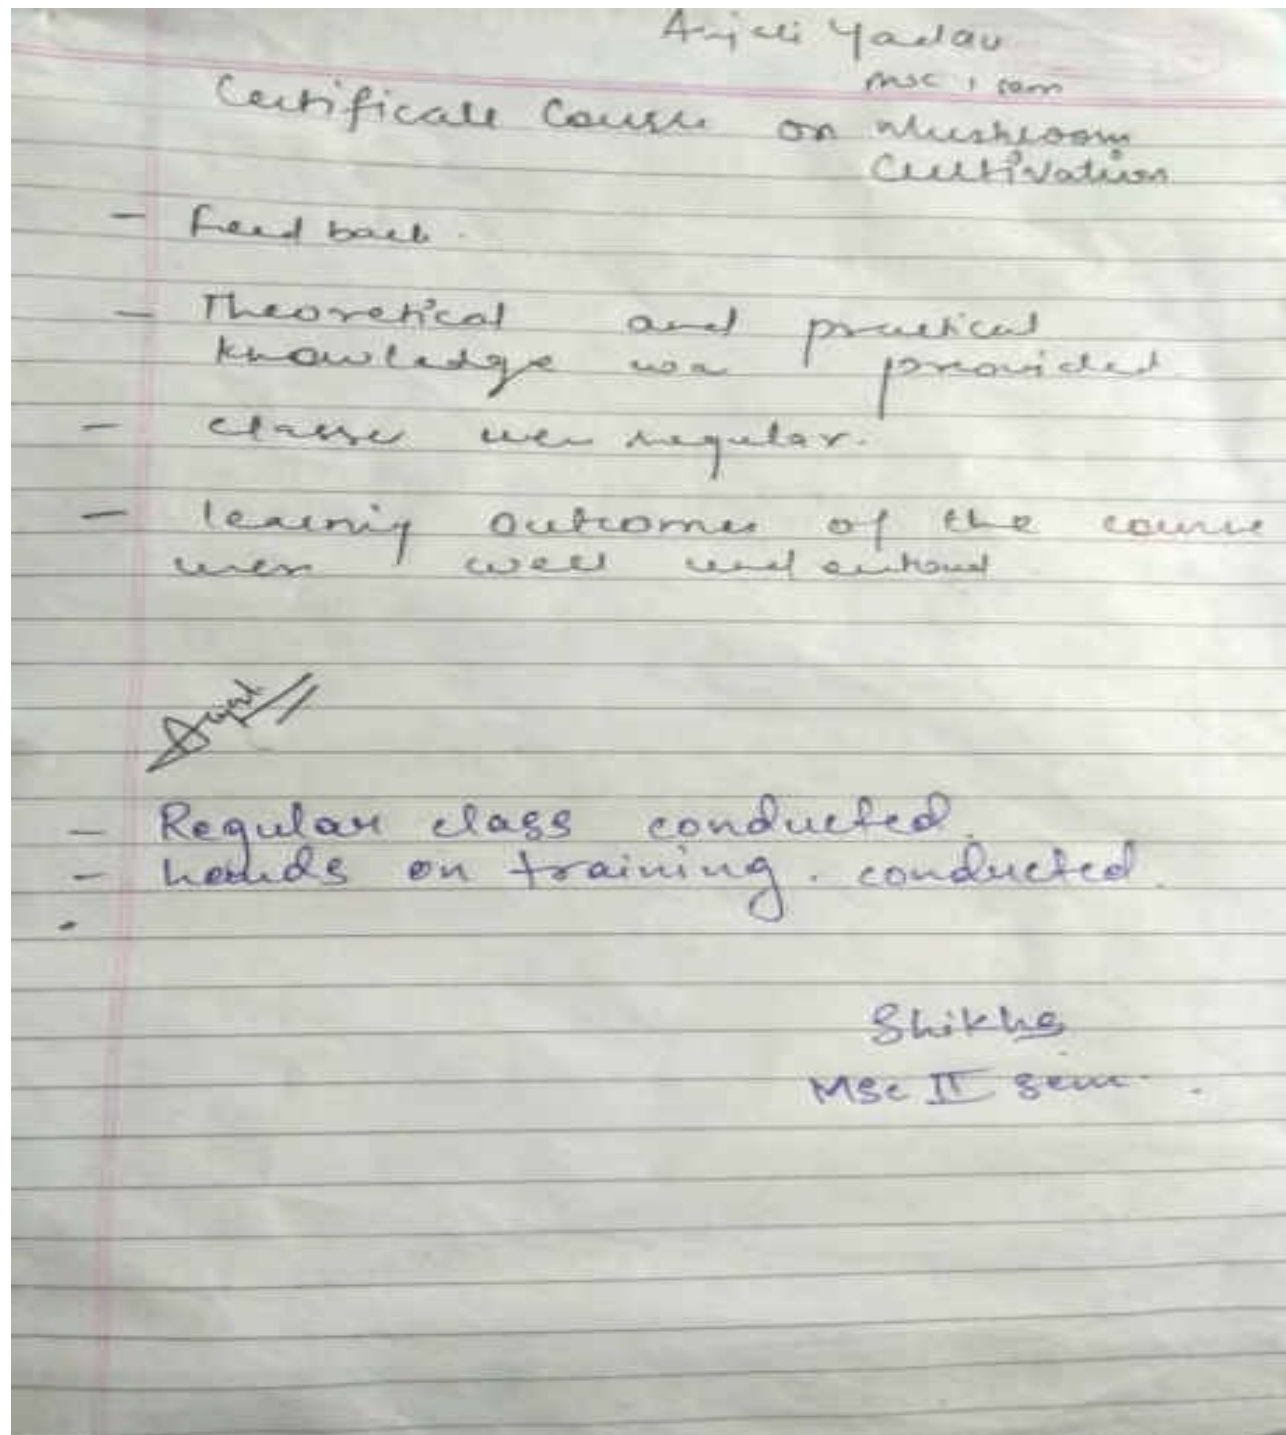 Anjali Yadav
Msc I sem
Certificate Course on Mushroom
Cultivation
- Feed back.
- Theoretical and practical
knowledge was provided.
- classes were regular.
- learning outcomes of the course
were well understood
Anjali
- Regular class conducted.
- hands on training. conducted.
Shikha
MSc II sem.